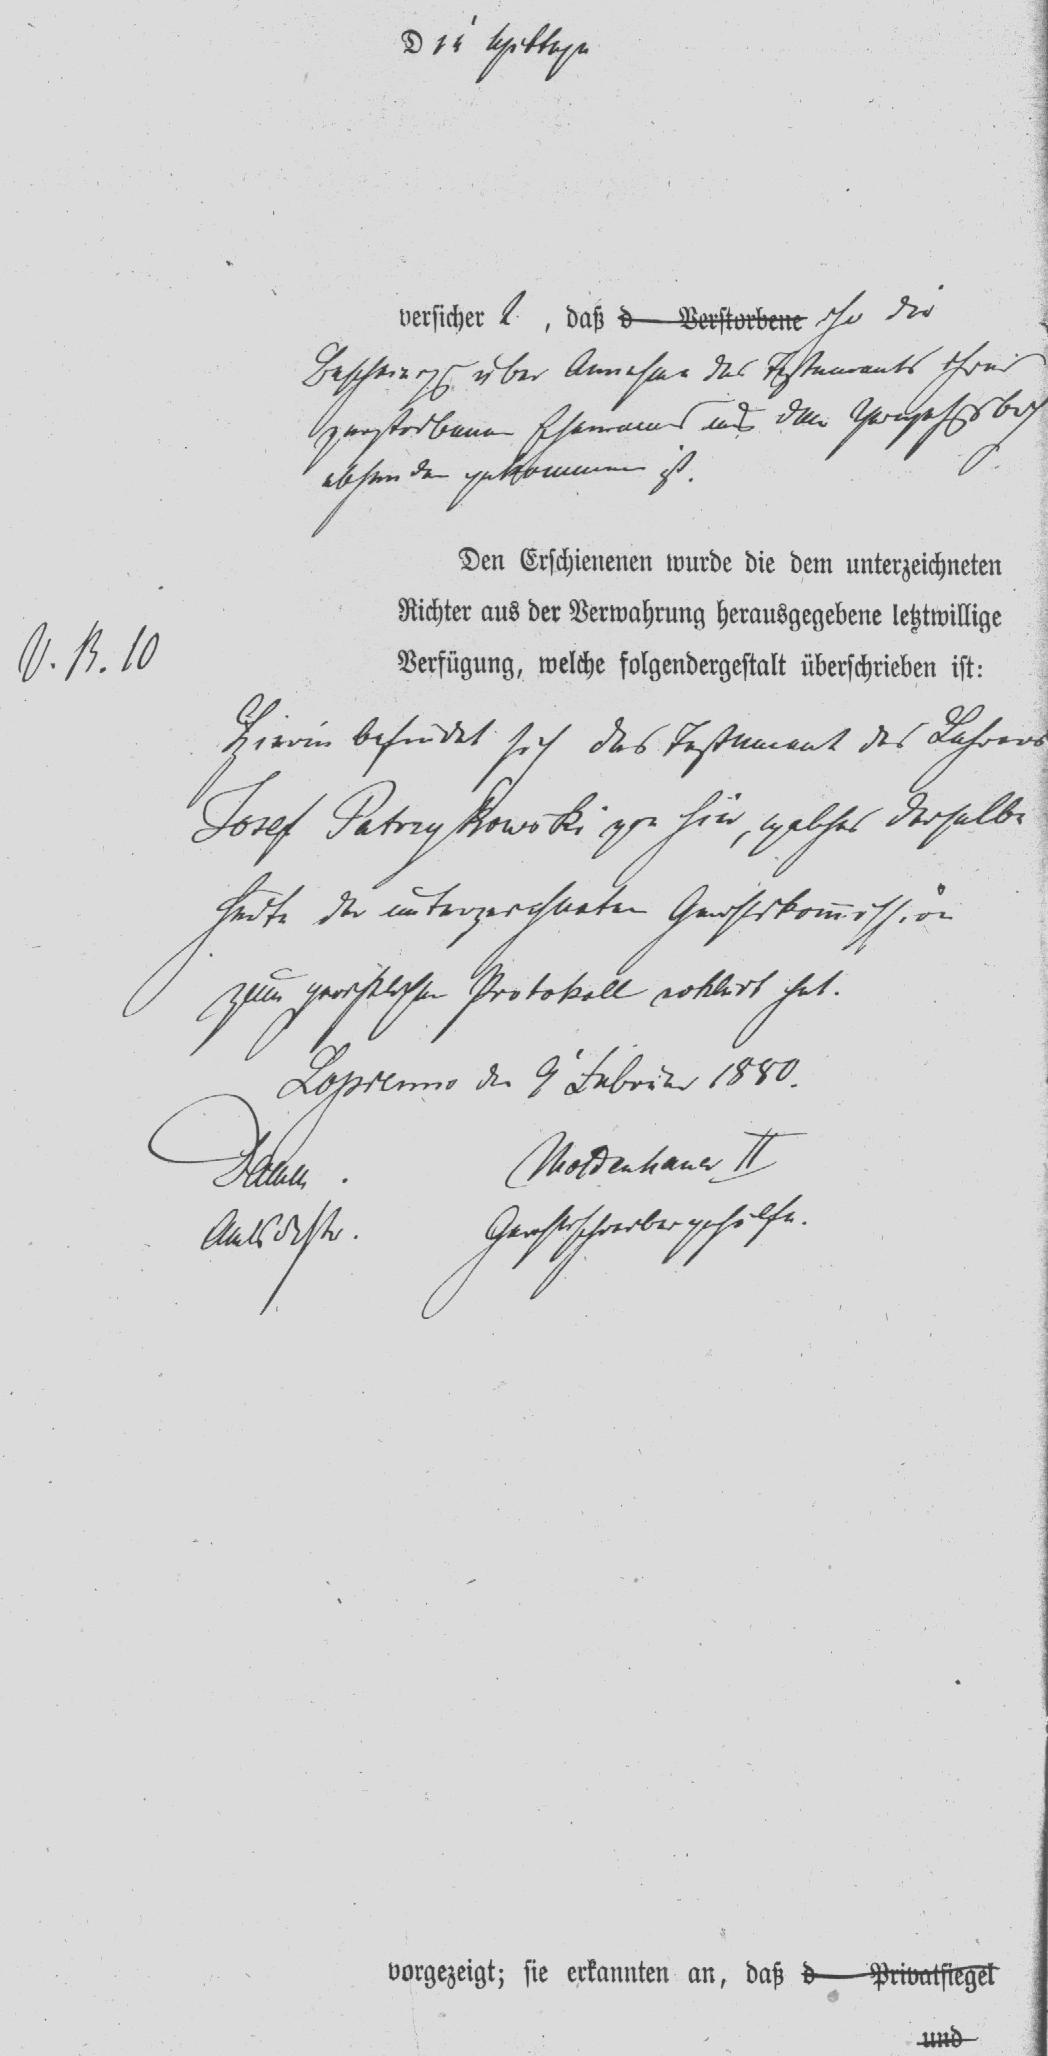 Die Wittwe
versichert, daß d Verstorbene ihr die
Bescheinigg über Annahme des Testaments ihres
verstorbenen Ehemannes und das
abhanden gekommen ist.
Den Erschienenen wurde die dem unterzeichneten
Richter aus der Verwahrung herausgegebene letztwillige
V. B. 10
Verfügung, welche folgendergestalt überschrieben ist:
Hierin befindet sich das Testament des Lehrers
Josef Patrzykowski von hier, welches derselbe
heute der unterzeichneten Gerichtskommission
zum gerichtlichen Protokoll erklärt hat.
Lopienno den 9' Februar 1880.
Damm. Moldenhauer II
Amtsrichter. Gerichtsschreibergehülfe.
vorgezeigt; sie erkannten an, daß d Privatsiegel
und